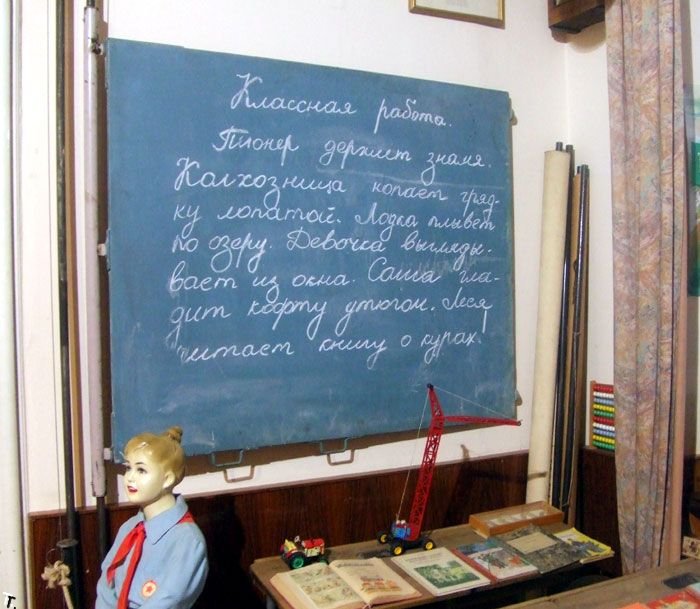 Классная работа.
Пионер держит знамя.
Колхозница копает гряд-
ку лопатой. Лодка плывет
по озеру. Девочка выгляды-
вает из окна. Саша гла-
дит кофту утюгом. Леся
читает книгу о курах!